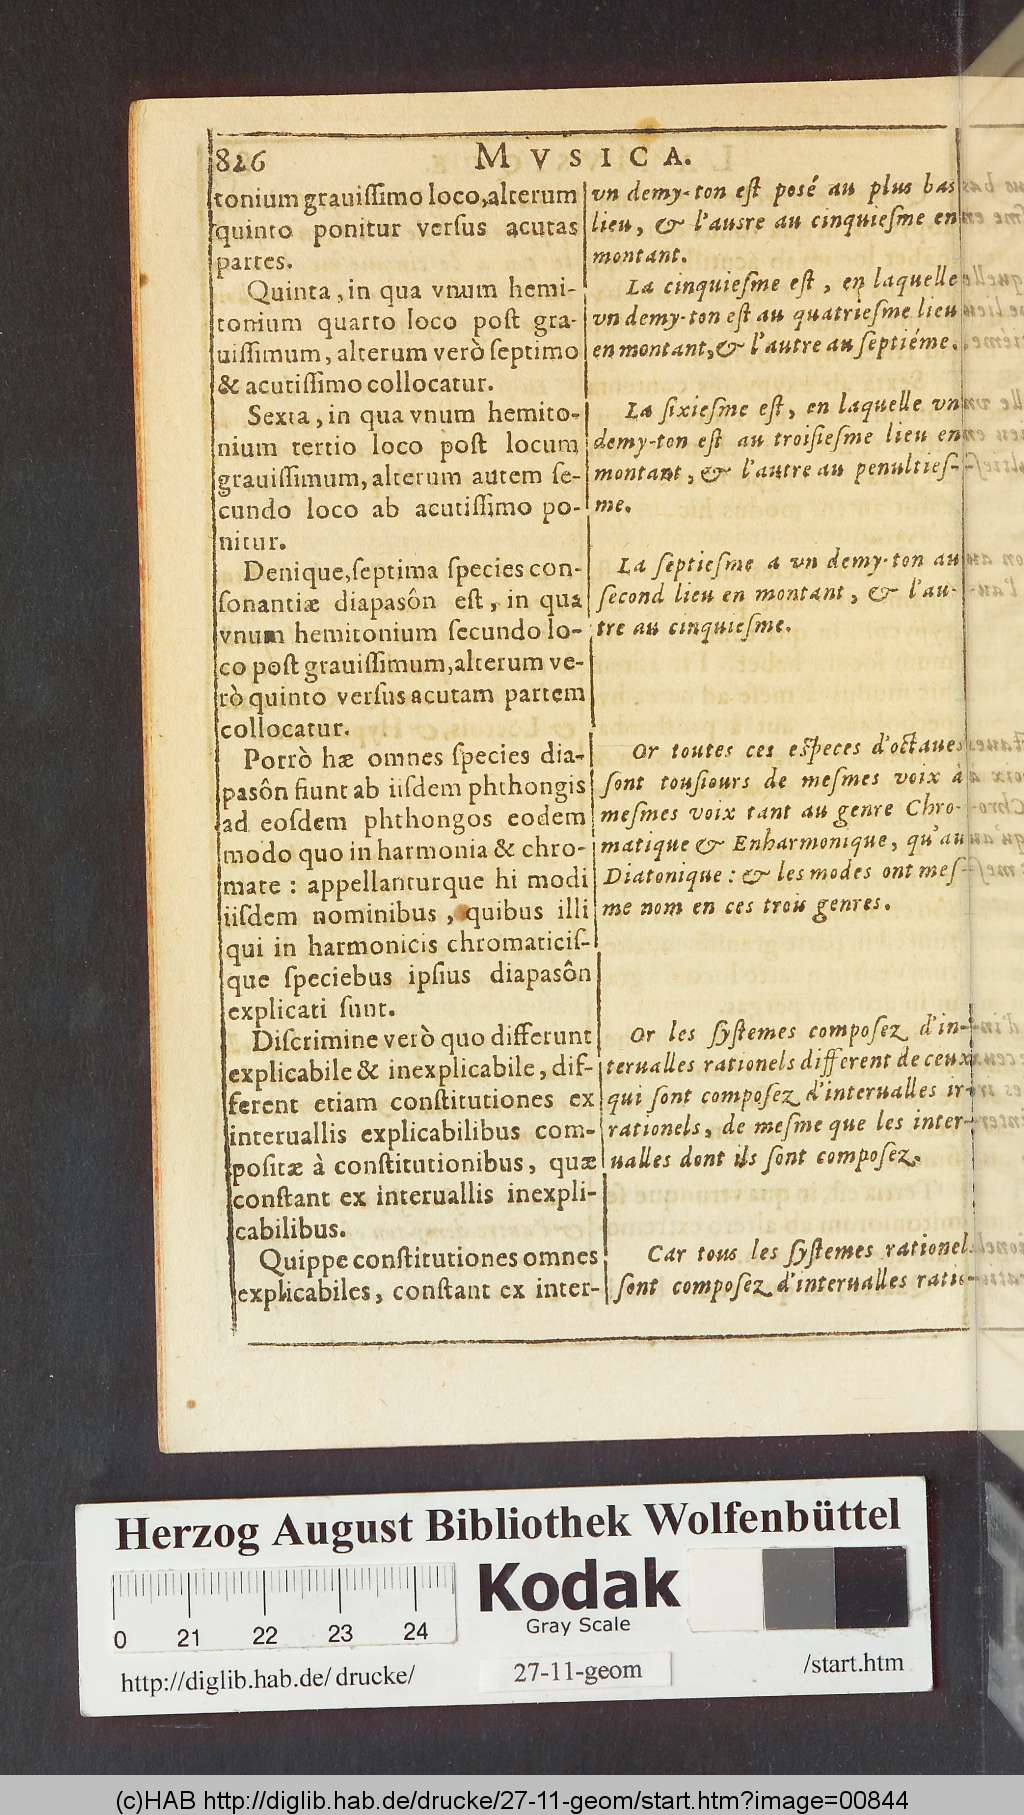 826
MVSICA.
tonium grauiſſimo loco, alterum
quinto ponitur verſus acutas
partes.
Quinta, in qua vnum hemi-
tonium quarto loco poſt gra-
uiſſimum, alterum verò ſeptimo
& acutiſſimo collocatur.
Sexta, in qua vnum hemito-
nium tertio loco poſt locum
grauiſſimum, alterum autem ſe-
cundo loco ab acutiſſimo po-
nitur.
Denique, ſeptima ſpecies con-
ſonantiæ diapasôn eſt, in qua
vnum hemitonium ſecundo lo-
co poſt grauiſſimum, alterum ve-
rò quinto verſus acutam partem
collocatur.
Porrò hæ omnes ſpecies dia-
pasôn fiunt ab iiſdem phthongis
ad eoſdem phthongos eodem
modo quo in harmonia & chro-
mate : appellanturque hi modi
iiſdem nominibus, quibus illi
qui in harmonicis chromaticiſ-
que ſpeciebus ipſius diapasôn
explicati ſunt.
Diſcrimine verò quo differunt
explicabile & inexplicabile, dif-
ferent etiam conſtitutiones ex
interuallis explicabilibus com-
poſitæ à conſtitutionibus, quæ
conſtant ex interuallis inexpli-
cabilibus.
Quippe conſtitutiones omnes
explicabiles, conſtant ex inter-
vn demy-ton eſt posé au plus bas
lieu, & l'ausre au cinquieſme en
montant.
La cinquieſme eſt, en laquelle
vn demy-ton eſt au quatrieſme lieu
en montant, & l'autre au ſeptiéme.
La ſixieſme eſt, en laquelle vn
demy-ton eſt au troiſieſme lieu en
montant, & l'autre au penultieſ-
me.
La ſeptieſme a vn demy-ton au
ſecond lieu en montant, & l'au-
tre au cinquieſme.
Or toutes ces eſpeces d'octaues
ſont touſiours de meſmes voix à
meſmes voix tant au genre Chro-
matique & Enharmonique, qu'au
Diatonique : & les modes ont meſ-
me nom en ces trois genres.
Or les ſyſtemes compoſez d'in-
teruálles rationels different de ceux
qui ſont compoſez d'interualles ir-
rationels, de meſme que les inter-
ualles dont ils ſont compoſez.
Car tous les ſyſtemes rationels
ſont compoſez d'interualles ratio-
Herzog August Bibliothek Wolfenbüttel
0 21 22 23 24
Kodak
Gray Scale
http://diglib.hab.de/ drucke/
27-11-geom
/start.htm
(c)HAB http://diglib.hab.de/drucke/27-11-geom/start.htm?image=00844